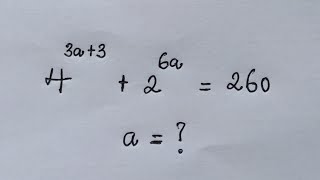 4^{3a+3} + 2^{6a} = 260
a = ?